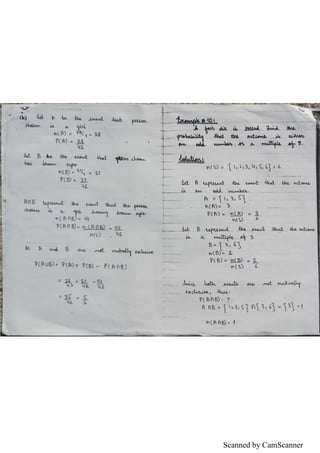 (b) Let A be the event that person
chosen is a girl
n(A) = = 28
P(A) = 28
42
Let B be the event that chosen
has brown eyes.
n(B) = = 21
P(B) = 21
42
A∩B represent the event that the person
chosen is a girl having brown eyes
n(A∩B) = 14
P(A∩B) = n(A∩B) = 14
n(S) 42
So A and B are not mutually exclusive
P(A∪B) = P(A) + P(B) - P(A∩B)
= 28 + 21 - 14
42 42 42
= 35 = 5
42 6
Example # 10:
A fair die is tossed. Find the
probability that the outcome is either
an odd number or a multiple of 3.
Solution:
n(S) = { 1, 2, 3, 4, 5, 6 } = 6
Let A represent the event that the outcome
is an odd number.
A = { 1, 3, 5 }
n(A) = 3
P(A) = n(A) = 3
n(S) 6
Let B represent the event that the outcome
is a multiple of 3
B = { 3, 6 }
n(B) = 2
P(B) = n(B) = 2
n(S) 6
Since both events are not mutually
exclusive, thus.
P(A∩B) = ?
A∩B = { 1, 3, 5 } ∩ { 3, 6 } = { 3 } = 1
n(A∩B) = 1
Scanned by CamScanner